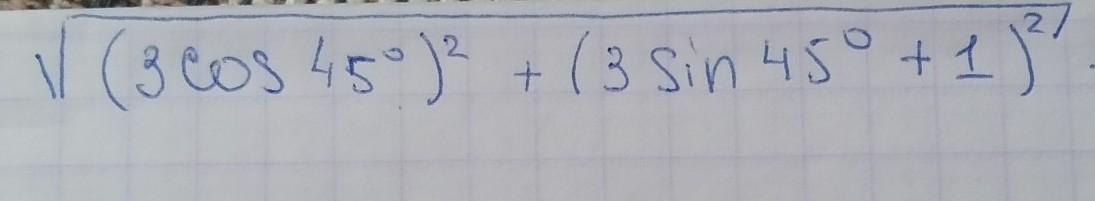 √(3cos 45°)² + (3 sin 45° + 1)²